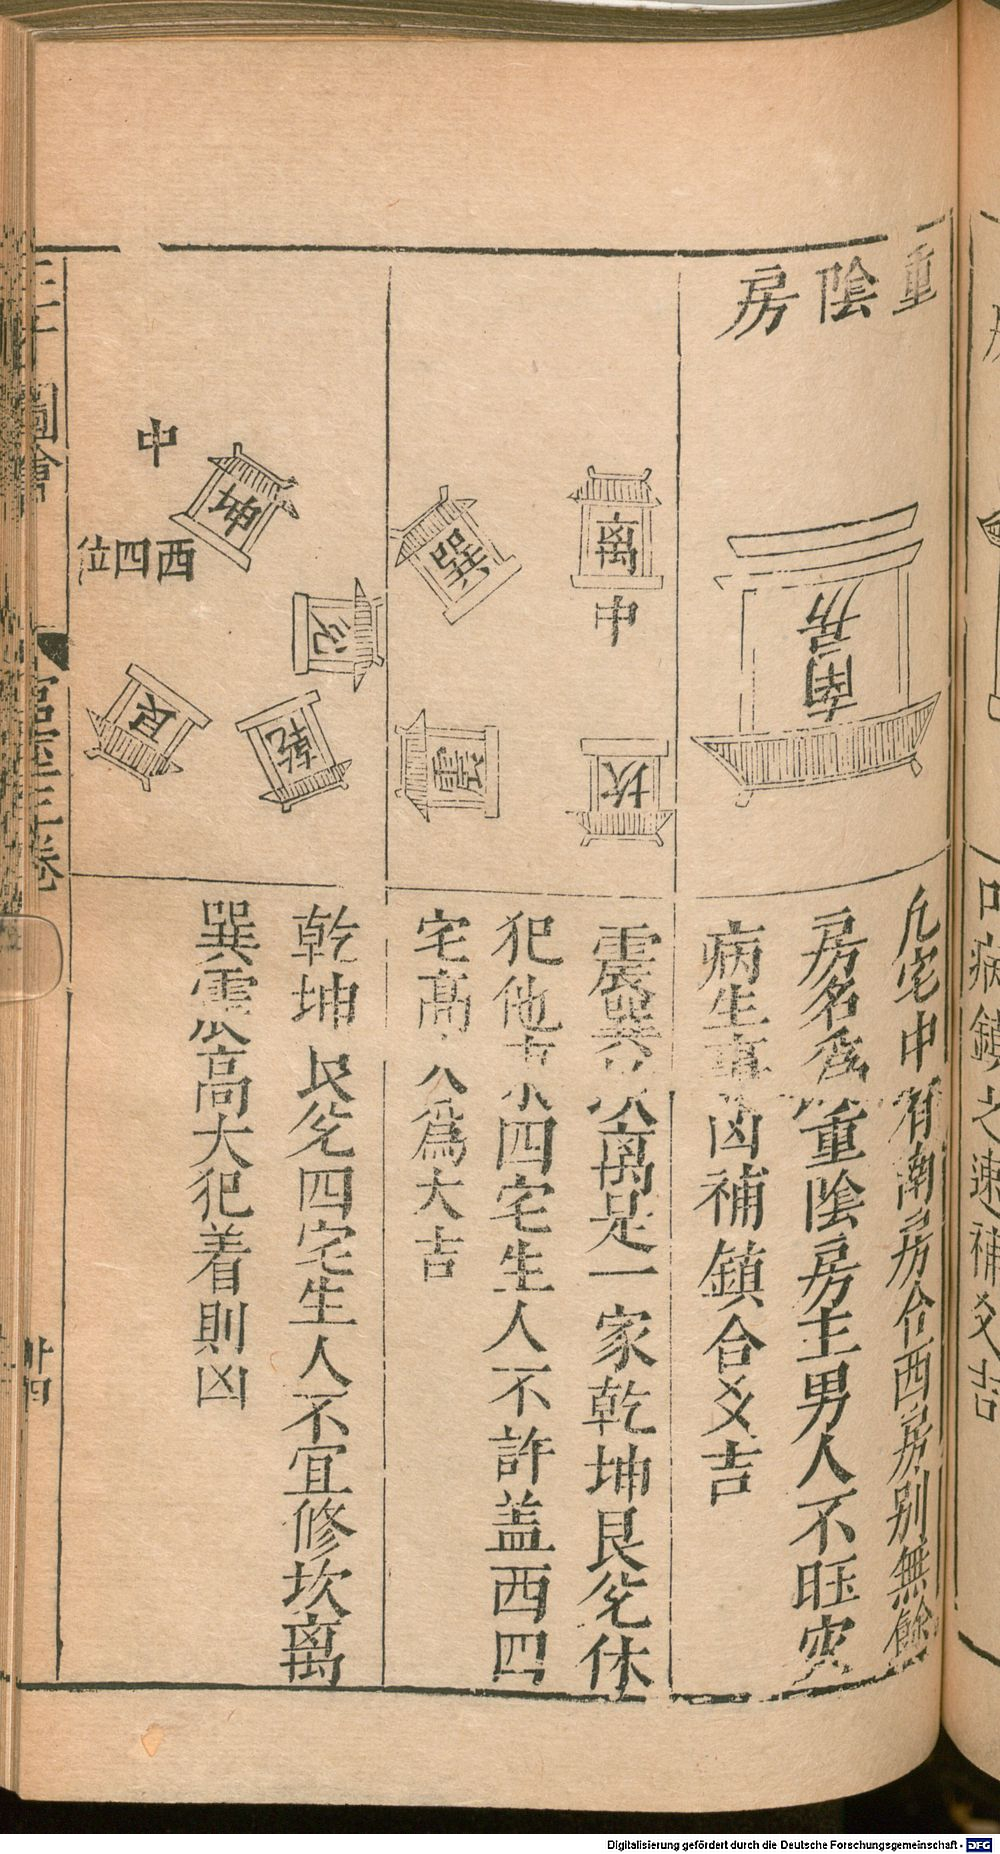 重陰房
南房
凢宅中有南房合西房别無餘
房名為重陰房主男人不旺灾
病生事凶補鎮合爻吉
离
中
坎
巽
震
震巽坎离是一家乾坤艮兊休
犯他東四宅生人不許盖西四
宅高大為大吉
中
西四位
坤
兊
乾
艮
乾坤艮兊四宅生人不宜修坎离
巽震高大犯着則凶
三才圖會
宫室二卷
卅四
病鎮之速補爻吉
Digitalisierung gefördert durch die Deutsche Forschungsgemeinschaft - DFG